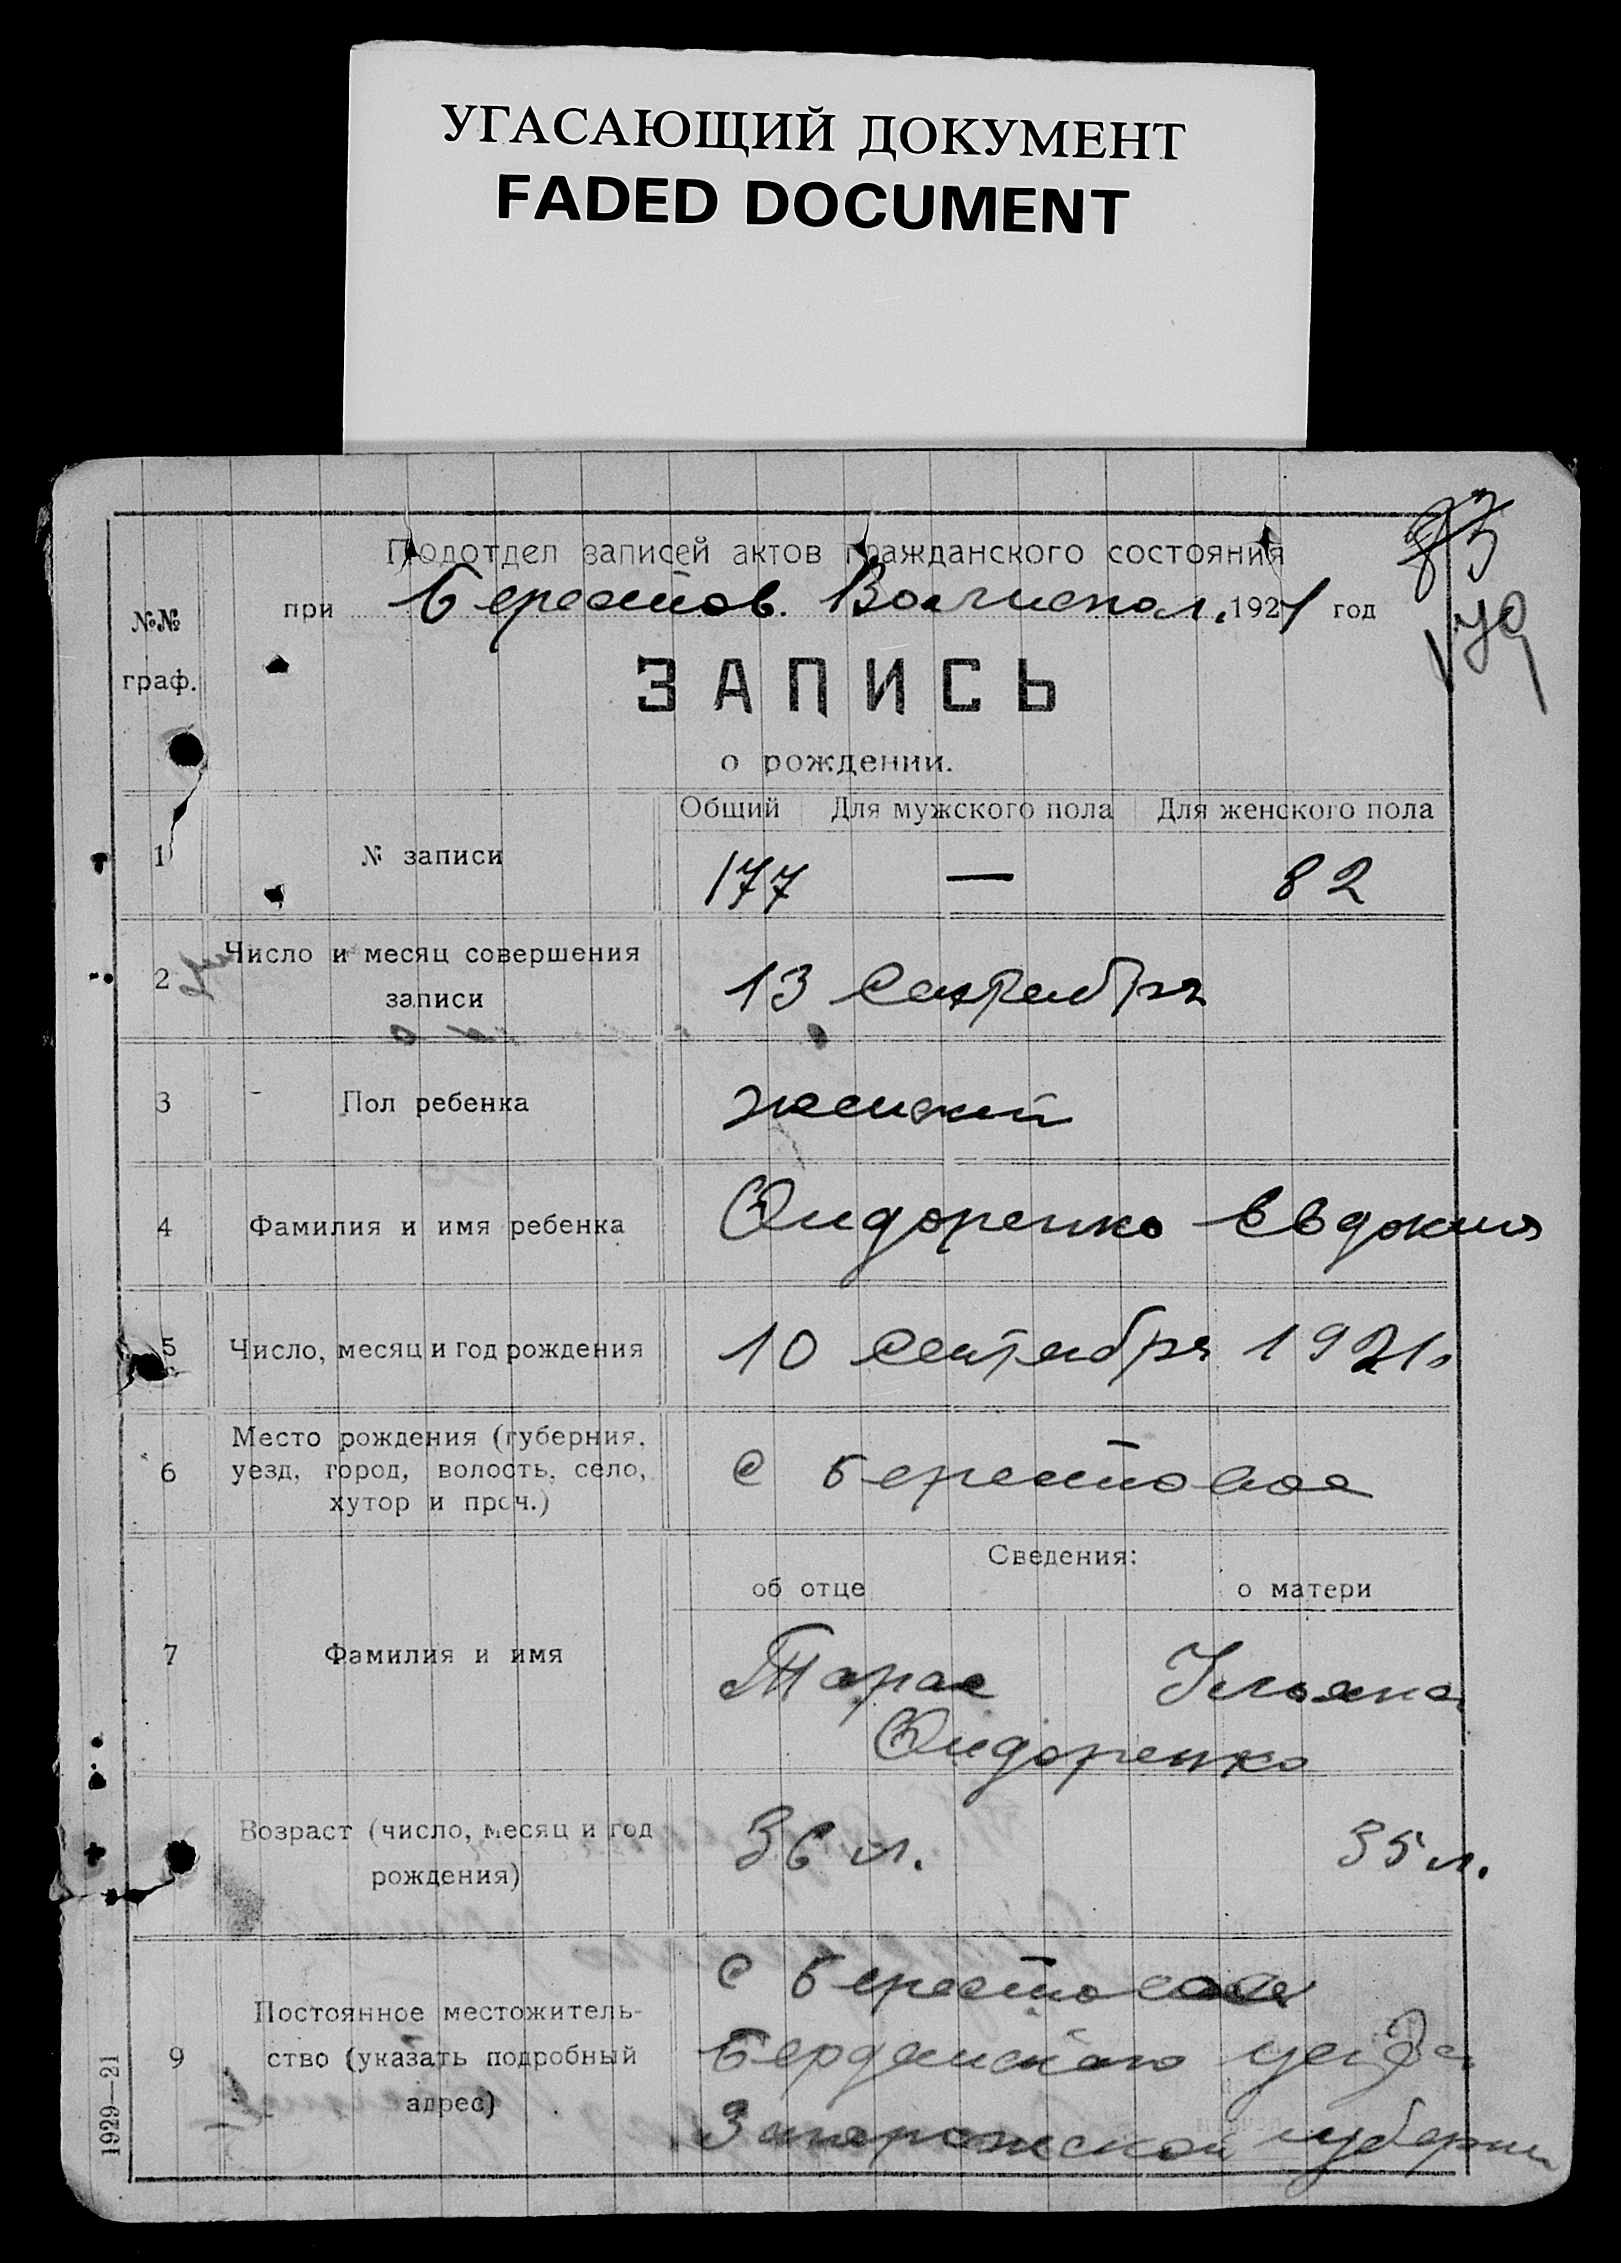 УГАСАЮЩИЙ ДОКУМЕНТ
FADED DOCUMENT
Подотдел записей актов гражданского состояния
при Берестов. Волисполк. 1921 год
№№ граф.
79
ЗАПИСЬ
о рождении.
Общий Для мужского пола Для женского пола
1 № записи 177 — 82
2 Число и месяц совершения
записи 13 сентября
3 Пол ребенка женский
4 Фамилия и имя ребенка Сидоренко Евдокия
5 Число, месяц и год рождения 10 сентября 1921г
6 Место рождения (губерния,
уезд, город, волость, село,
хутор и проч.) с Берестовое
Сведения:
об отце о матери
7 Фамилия и имя Тарас Ульяна
Сидоренко
Возраст (число, месяц и год
рождения) 36 л. 35 л.
9 Постоянное местожитель-
ство (указать подробный
адрес) с Берестовое
Бердянского уезда
Запорожской губернии
1929—21